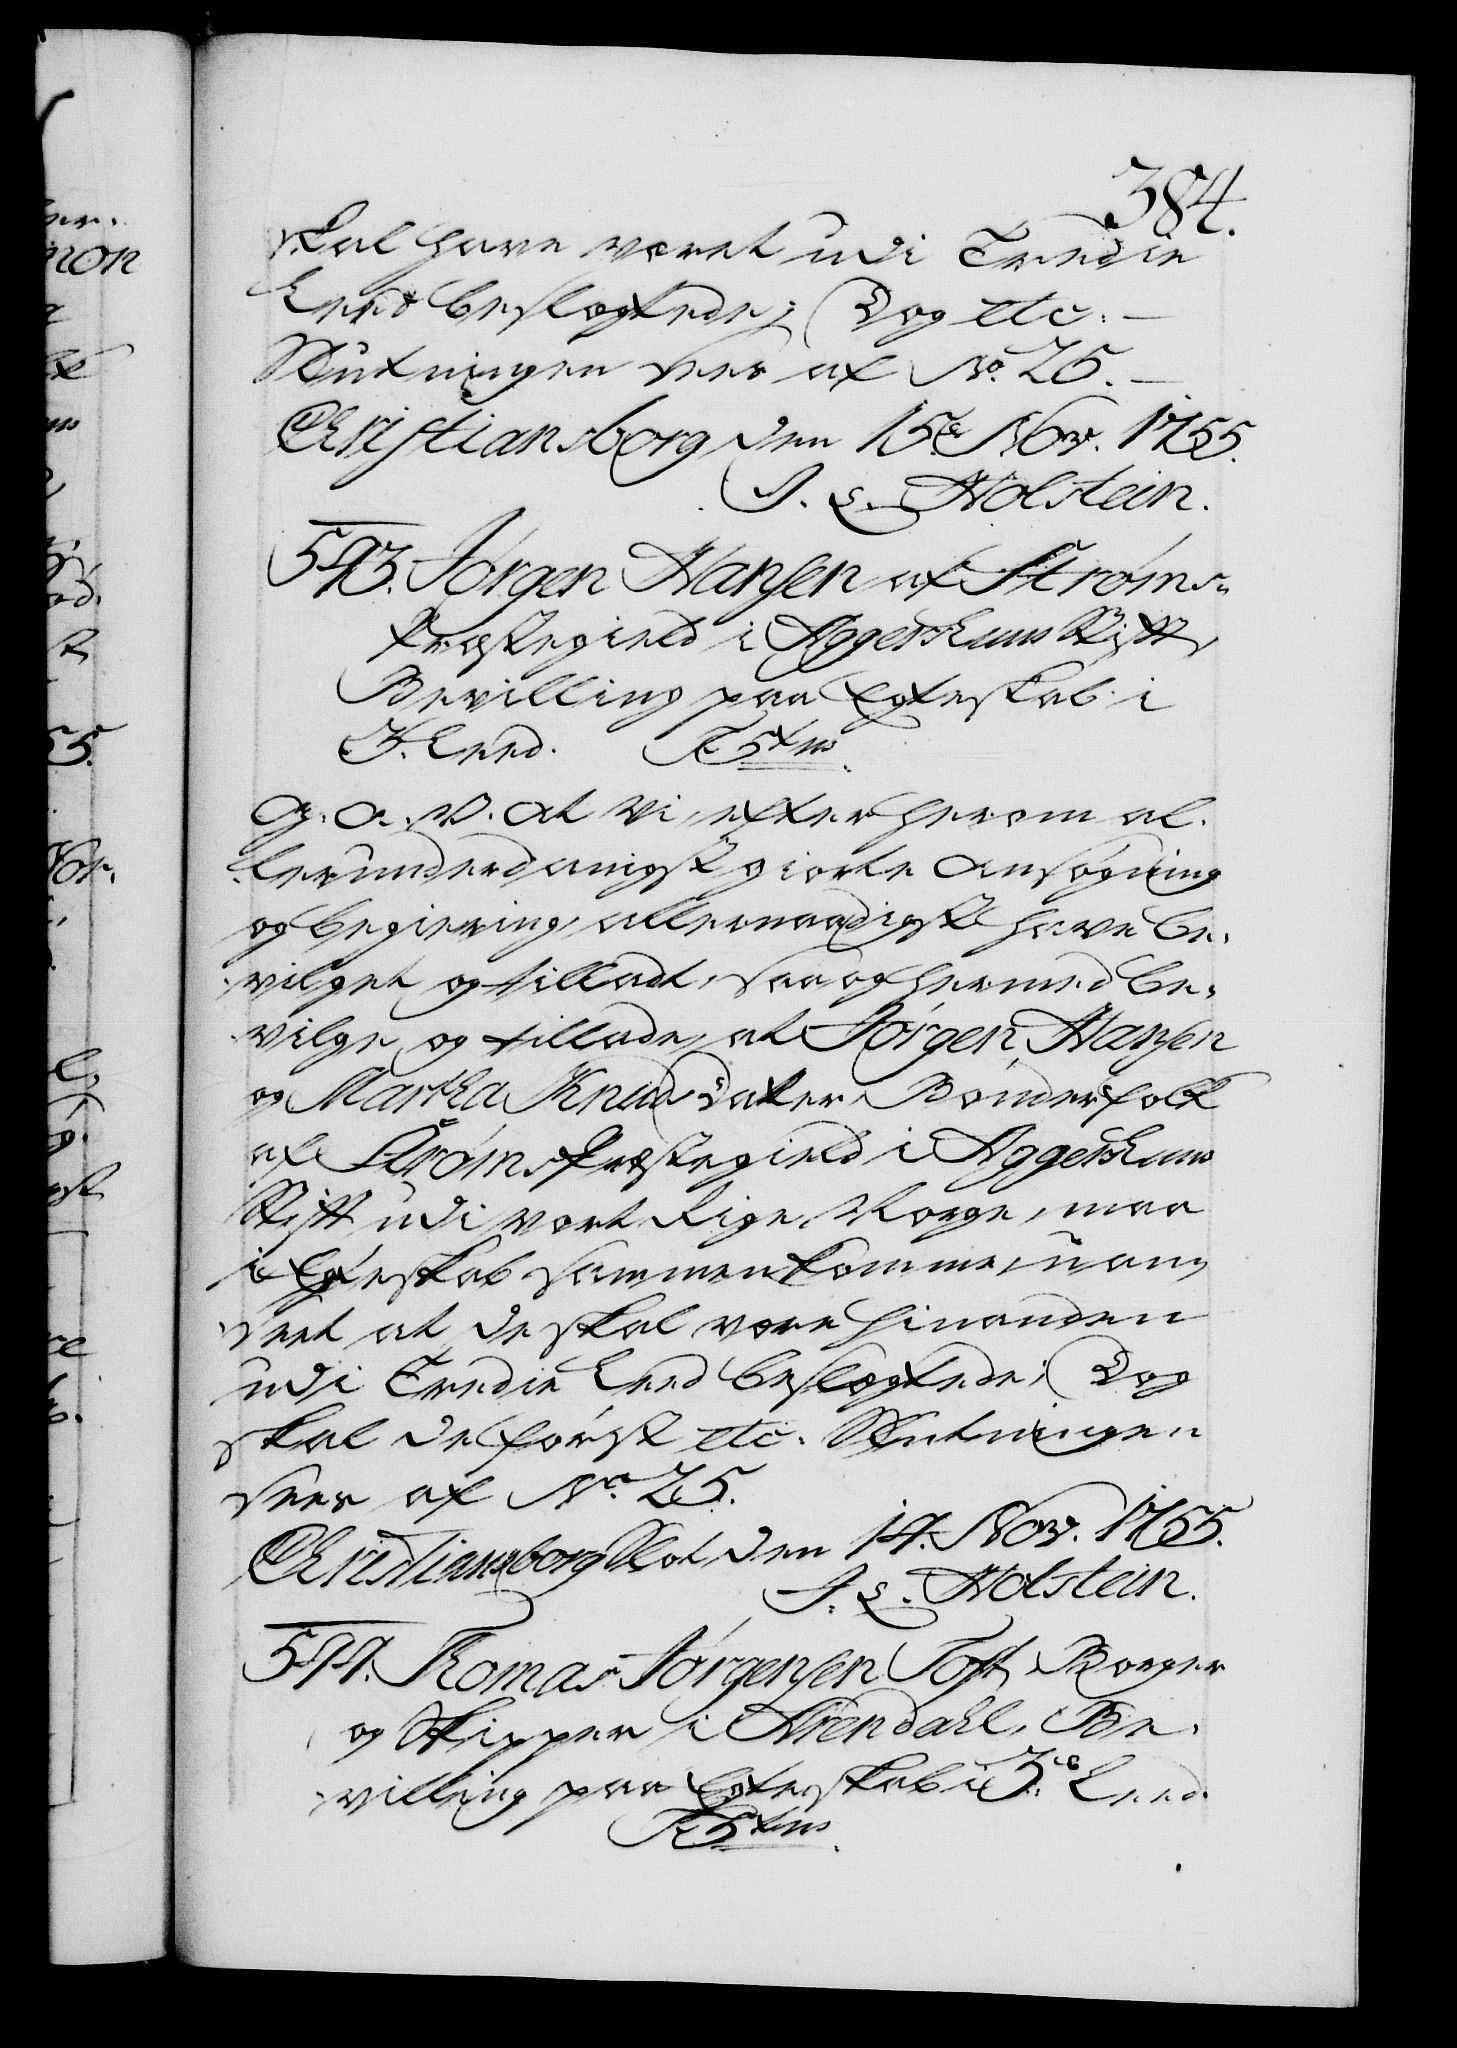 384.
skal have været udi Tredie
Leed beslægtede; Dog etc. —
Slutningen sees af No. 25. —
Christiansborg den 15de Nov. 1755.
J. L. Holstein.
543. Jørgen Hansen af Strøms-
Præstegield i Aggershuus Stift,
Bevilling paa Egteskab i
3. Leed.
G. A. V. at Vi, efter herom al-
lerunderdanigst giorte Ansøgning
og begiering, allernaadigst have be-
vilget og tilladt, saa og hermed be-
vilge og tillade, at Jørgen Hansen
og Martha Knuds Datter, Bønderfolk
af Strøms Præstegield i Aggershuus
Stift udi vort Rige Norge, maa
i Egteskab sammenkomme, uan-
seet at de skal være hinanden
udi Tredie Leed beslægtede; Dog
skal de først etc. Slutningen
sees af No. 25.
Christiansborg Slot den 14. Nov. 1755.
J. L. Holstein.
544. Thomas Jørgensen Toft, Borger
og Skipper i Arendahl, Be-
villing paa Egteskab i 3de Leed.